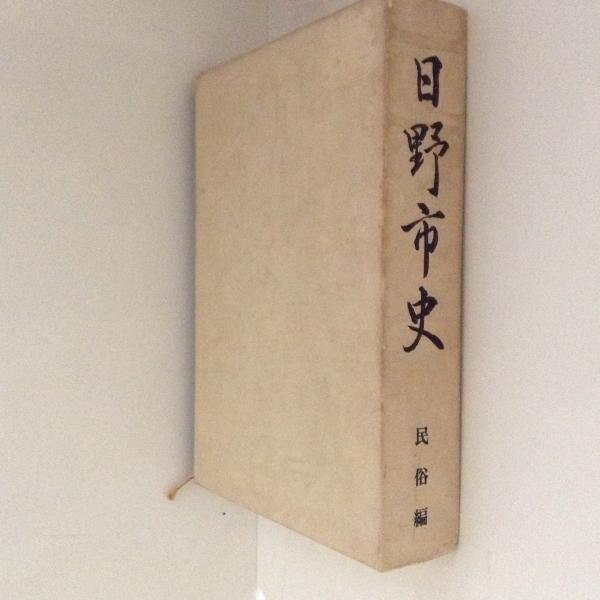 日野市史
民俗編